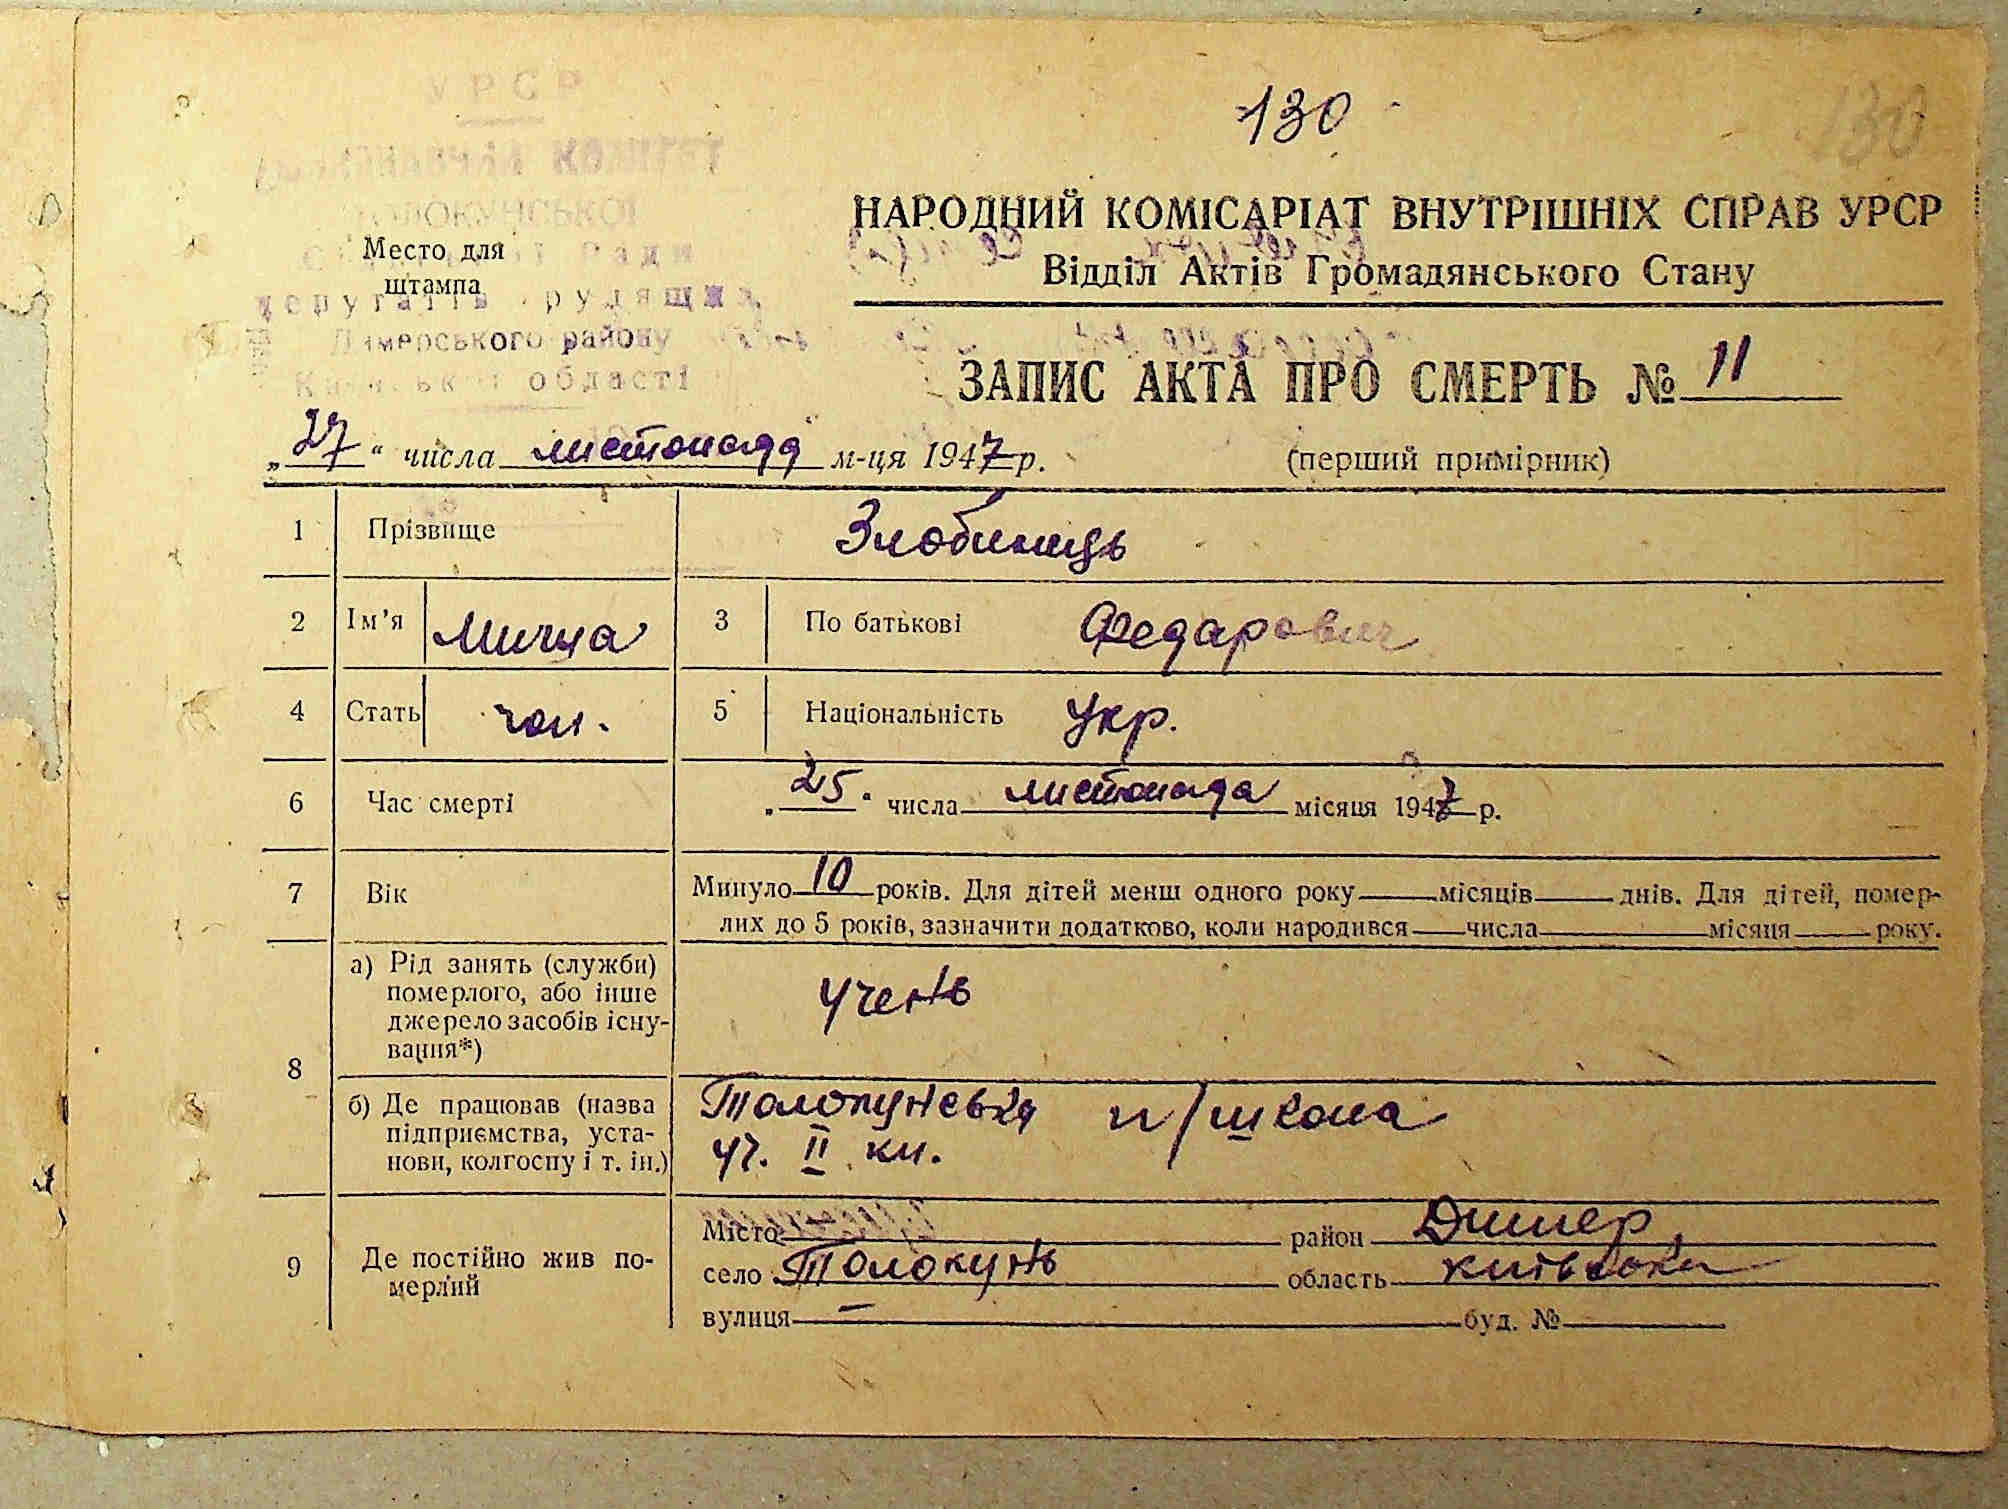 130
130
УРСР
Виконавчий Комітет
Толокунської
Сільської Ради
депутатів трудящих
Димерського району
Київської області
Место для
штампа
НАРОДНИЙ КОМІСАРІАТ ВНУТРІШНІХ СПРАВ УРСР
Відділ Актів Громадянського Стану
ЗАПИС АКТА ПРО СМЕРТЬ № 11
„27“ числа листопада м-ця 1947 р. (перший примірник)
1 Прізвище Злобинець
2 Ім'я Миша 3 По батькові Федарович
4 Стать чол. 5 Національність Укр.
6 Час смерті „25“ числа листопада місяця 1947 р.
7 Вік Минуло 10 років. Для дітей менш одного року місяців днів. Для дітей, помер-
лих до 5 років, зазначити додатково, коли народився числа місяця року.
8 а) Рід занять (служби)
померлого, або інше
джерело засобів існу-
вання*)
Учень
б) Де працював (назва
підприємства, уста-
нови, колгоспу і т. ін.)
п/школа
уч. II кл.
9 Де постійно жив по-
мерлий
Місто район Димер
село Толокунь область київська
вулиця — буд. №